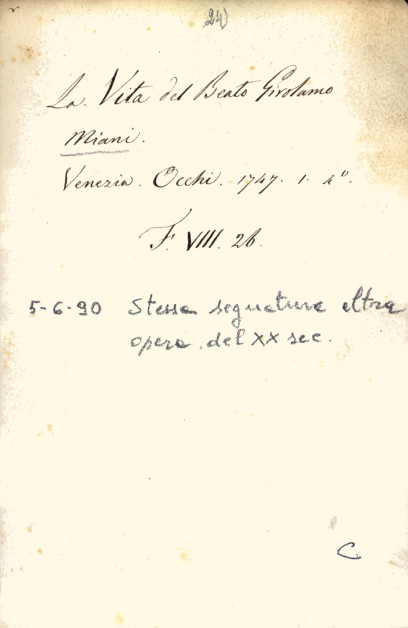 24)
La Vita del Beato Girolamo
Miani.
Venezia. Occhi. 1747. 1. 4°.
F. VIII. 26.
5-6-90 Stessa segnatura altra
opera del XX sec.
C